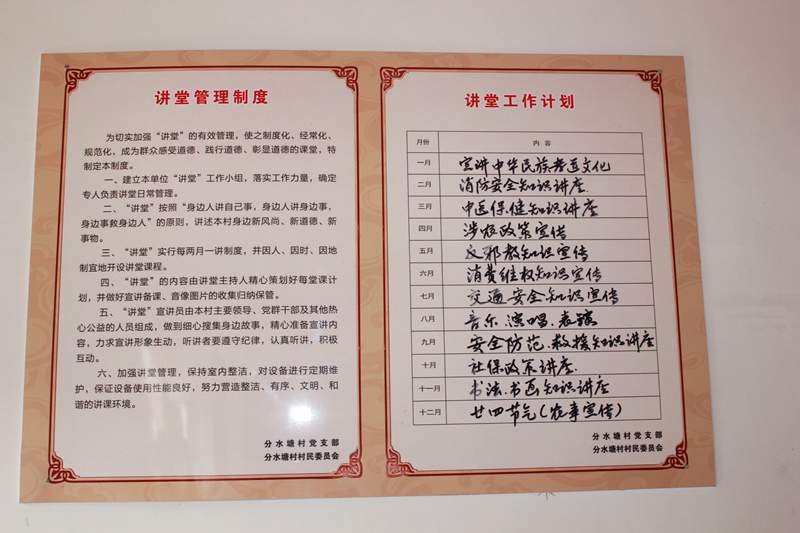 讲堂管理制度
为切实加强“讲堂”的有效管理，使之制度化、经常化、
规范化，成为群众感受道德、践行道德、彰显道德的课堂，特
制定本制度。
一、建立本单位“讲堂”工作小组，落实工作力量，确定
专人负责讲堂日常管理。
二、“讲堂”按照“身边人讲自己事，身边人讲身边事，
身边事教身边人”的原则，讲述本村身边新风尚、新道德、新
事物。
三、“讲堂”实行每两月一讲制度，并因人、因时、因地
制宜地开设讲堂课程。
四、“讲堂”的内容由讲堂主持人精心策划好每堂课计
划，并做好宣讲备课、音像图片的收集归纳保管。
五、“讲堂”宣讲员由本村主要领导、党群干部及其他热
心公益的人员组成，做到细心搜集身边故事，精心准备宣讲内
容，力求宣讲形象生动，听讲者要遵守纪律，认真听讲，积极
互动。
六、加强讲堂管理，保持室内整洁，对设备进行定期维
护，保证设备使用性能良好，努力营造整洁、有序、文明、和
谐的讲课环境。
分水塘村党支部
分水塘村村民委员会
讲堂工作计划
月份 内容
一月 宣讲中华民族孝道文化
二月 消防安全知识讲座.
三月 中医保健知识讲座
四月 涉农政策宣传
五月 反邪教知识宣传
六月 消费维权知识宣传
七月 交通安全知识宣传
八月 音乐.演唱.表演
九月 安全防范.救援知识讲座
十月 社保政策讲座.
十一月 书法.书画知识讲座
十二月 廿四节气(农事宣传)
分水塘村党支部
分水塘村村民委员会